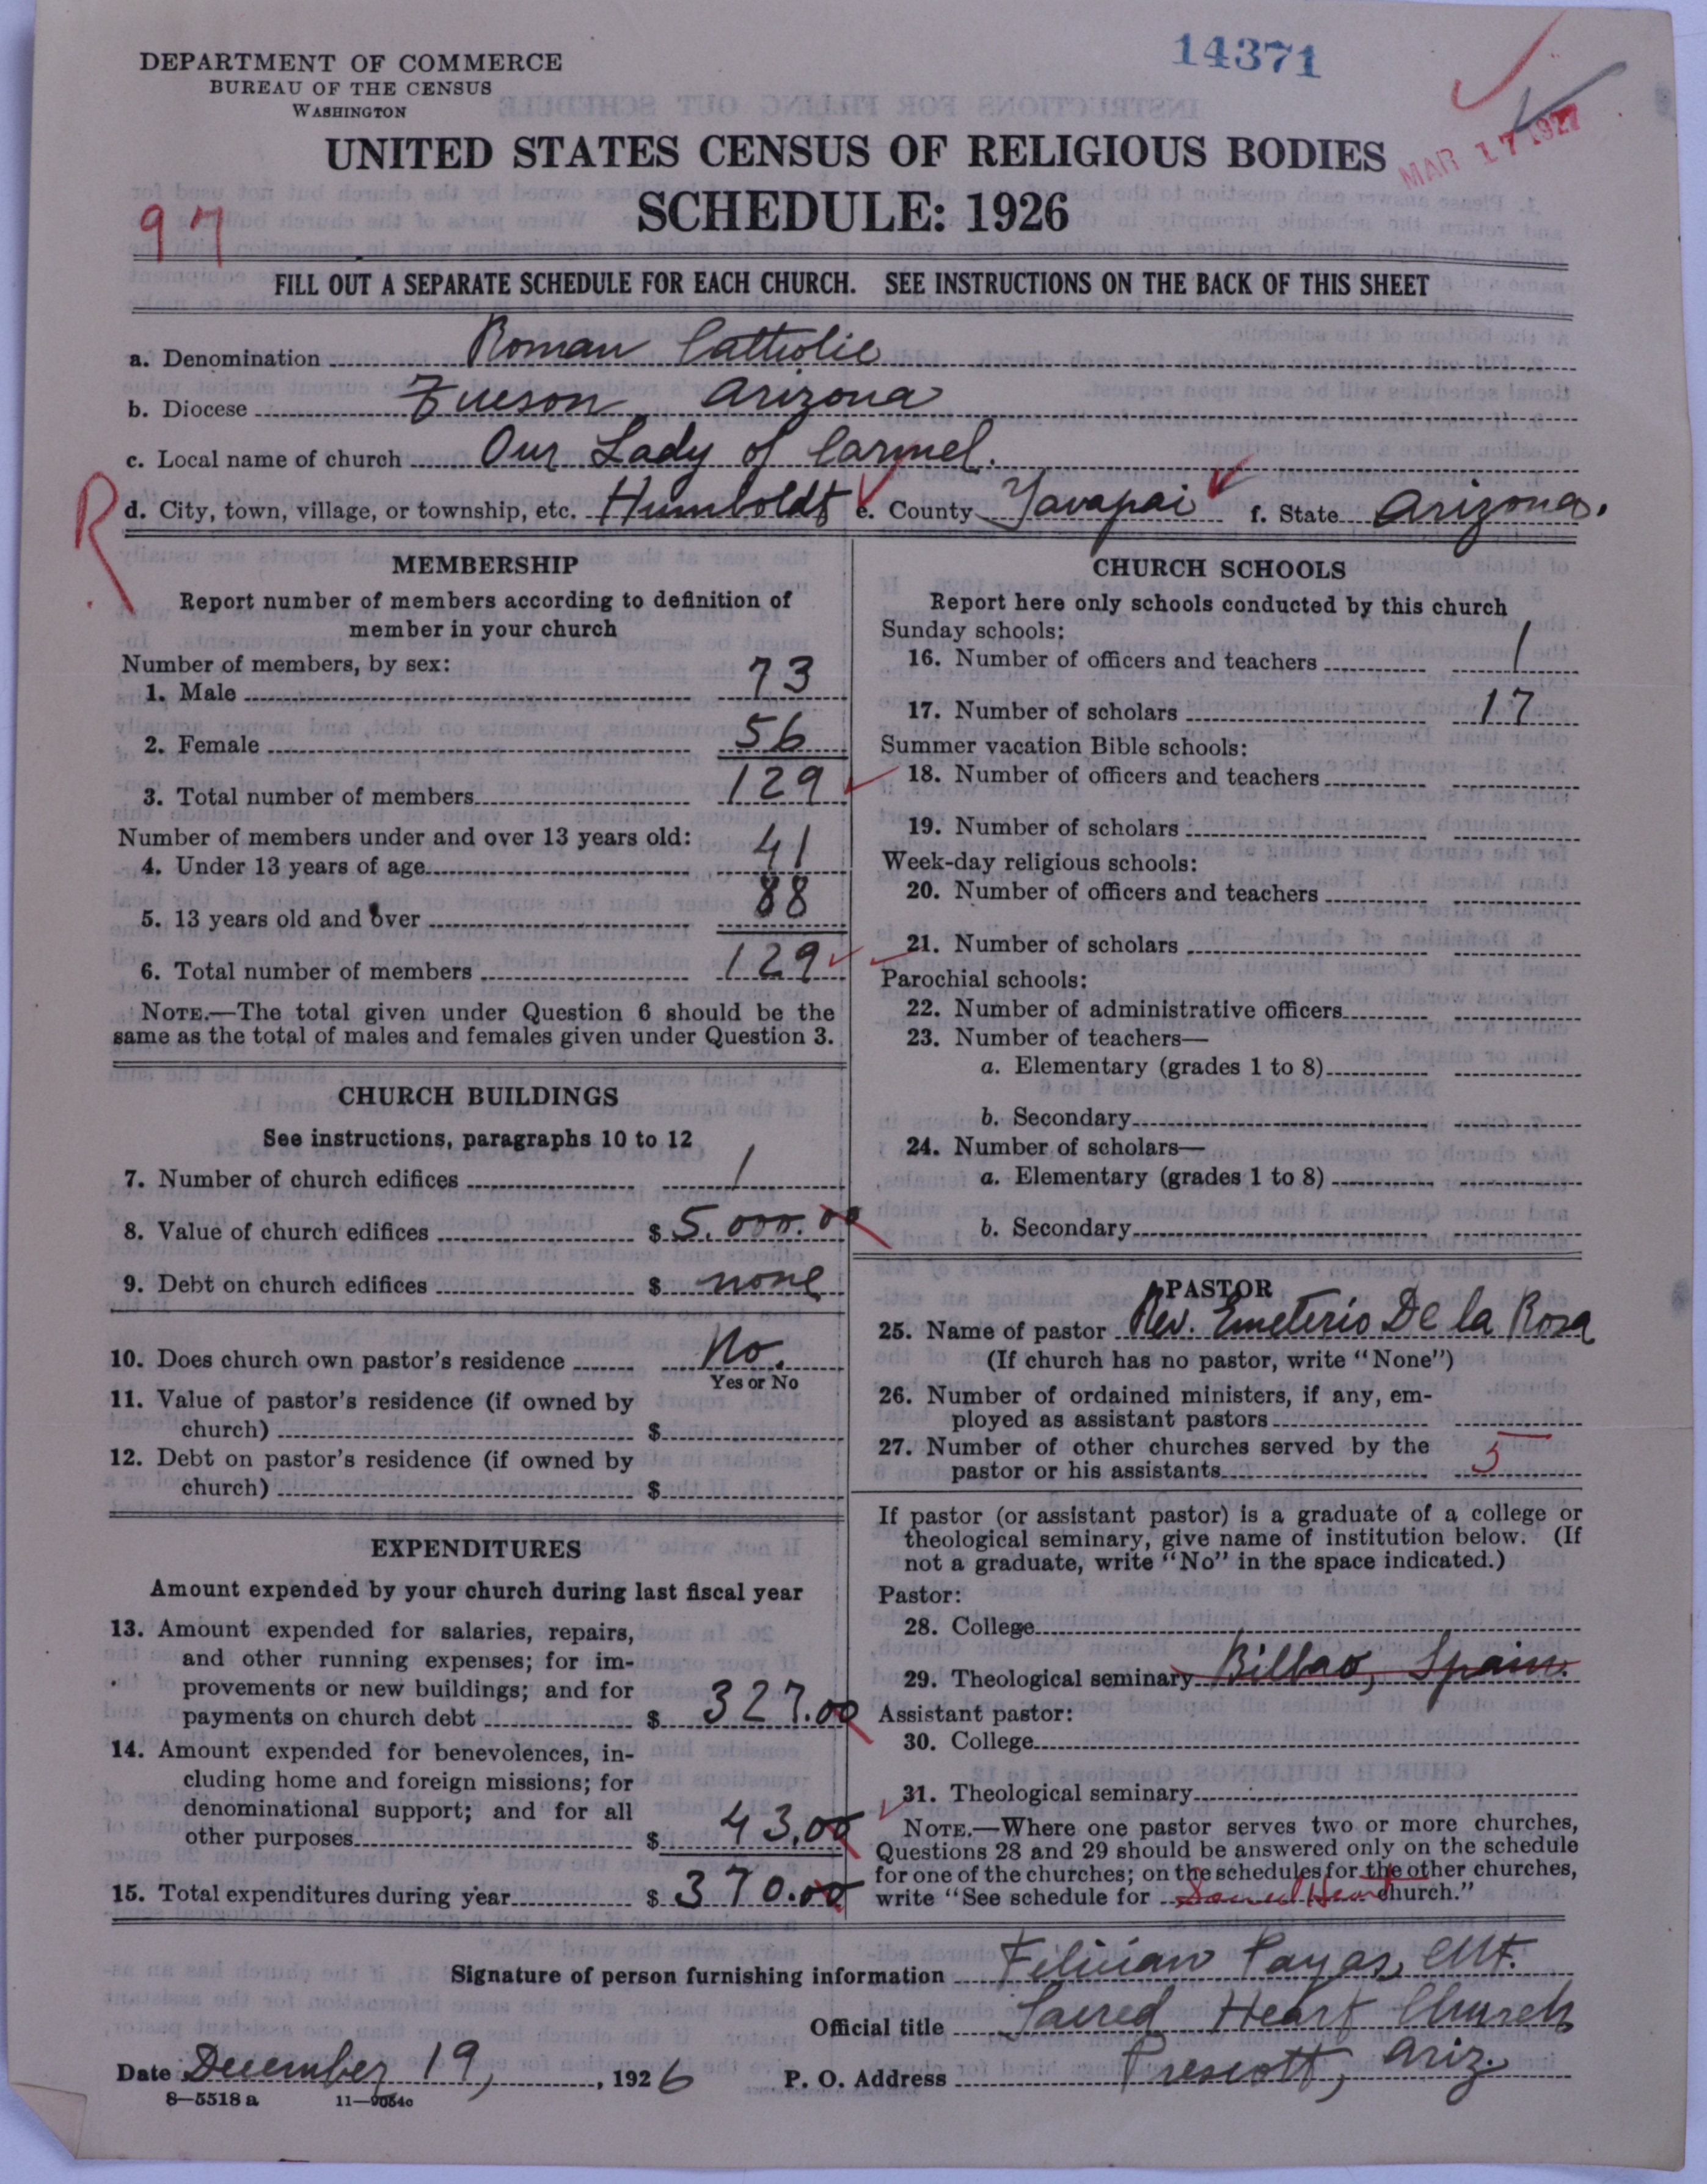 DEPARTMENT OF COMMERCE
BUREAU OF THE CENSUS
WASHINGTON
14371
MAR 17 1927
UNITED STATES CENSUS OF RELIGIOUS BODIES
SCHEDULE: 1926
97
FILL OUT A SEPARATE SCHEDULE FOR EACH CHURCH. SEE INSTRUCTIONS ON THE BACK OF THIS SHEET
a. Denomination Roman Catholic
b. Diocese Tucson, Arizona
c. Local name of church Our Lady of Carmel.
R
d. City, town, village, or township, etc. Humboldt e. County Yavapai f. State Arizona.
MEMBERSHIP
Report number of members according to definition of
member in your church
Number of members, by sex:
1. Male 73
2. Female 56
3. Total number of members 129
Number of members under and over 13 years old:
4. Under 13 years of age 41
5. 13 years old and over 88
6. Total number of members 129
NOTE.—The total given under Question 6 should be the
same as the total of males and females given under Question 3.
CHURCH BUILDINGS
See instructions, paragraphs 10 to 12
7. Number of church edifices 1
8. Value of church edifices $ 5,000.00
9. Debt on church edifices $ none
10. Does church own pastor's residence No.
Yes or No
11. Value of pastor's residence (if owned by
church) $
12. Debt on pastor's residence (if owned by
church) $
EXPENDITURES
Amount expended by your church during last fiscal year
13. Amount expended for salaries, repairs,
and other running expenses; for im-
provements or new buildings; and for
payments on church debt $ 327.00
14. Amount expended for benevolences, in-
cluding home and foreign missions; for
denominational support; and for all
other purposes $ 43.00
15. Total expenditures during year $ 370.00
CHURCH SCHOOLS
Report here only schools conducted by this church
Sunday schools:
16. Number of officers and teachers 1
17. Number of scholars 17
Summer vacation Bible schools:
18. Number of officers and teachers
19. Number of scholars
Week-day religious schools:
20. Number of officers and teachers
21. Number of scholars
Parochial schools:
22. Number of administrative officers
23. Number of teachers—
a. Elementary (grades 1 to 8)
b. Secondary
24. Number of scholars—
a. Elementary (grades 1 to 8)
b. Secondary
PASTOR
25. Name of pastor Rev. Emeterio De la Rosa
(If church has no pastor, write "None")
26. Number of ordained ministers, if any, em-
ployed as assistant pastors
27. Number of other churches served by the
pastor or his assistants 5
If pastor (or assistant pastor) is a graduate of a college or
theological seminary, give name of institution below. (If
not a graduate, write "No" in the space indicated.)
Pastor:
28. College
29. Theological seminary Bilbao, Spain.
Assistant pastor:
30. College
31. Theological seminary
NOTE.—Where one pastor serves two or more churches,
Questions 28 and 29 should be answered only on the schedule
for one of the churches; on the schedules for the other churches,
write "See schedule for Sacred Heart church."
Signature of person furnishing information Felician Payas, CMF.
Official title Sacred Heart Church
Date December 19, 1926 P. O. Address Prescott, Ariz.
8—5518 a 11—9054c